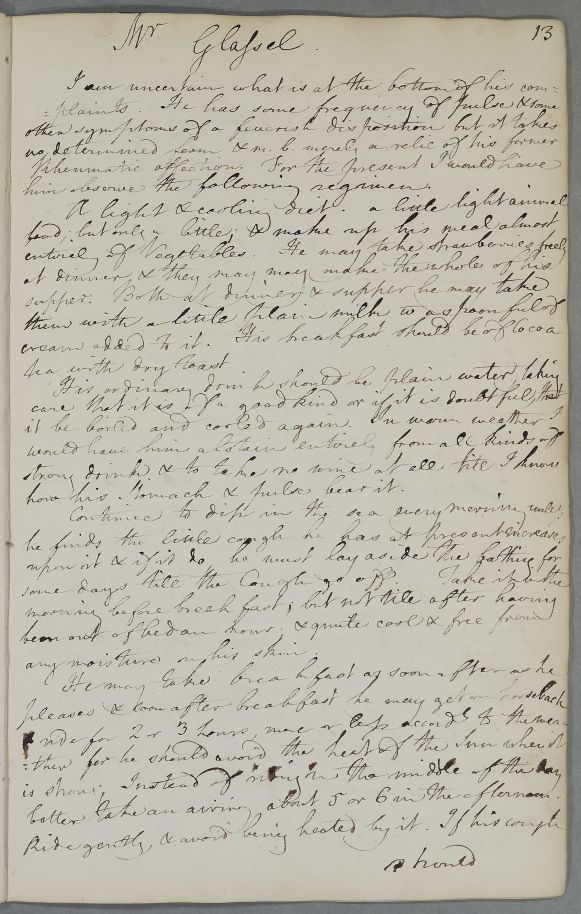 13
Mr Glassel.
I am uncertain what is at the bottom of his com=
=plaints. He has some frequency of pulse & some
other symptoms of a feverish disposition but it takes
no determined form & m. b. merely a relic of his former
Rheumatic affection. For the present I would have
him observe the following regimen.
A light & cooling diet. a little light animal
food, but only a little; & make up his meal almost
entirely of Vegetables. He may take strawberries freely
at dinner, & they may may make the whole of his
supper. Both at dinner, & supper he may take
them with a little plain milk w a spoonful of
cream added to it. His breakfast should be of Cocoa
tea with dry toast
His ordinary drink should be plain water taking
care that it is of a good kind or if it is doubtful, that
it be boiled and cooled again. In warm weather I
would have him abstain entirely from all kinds of
strong drink & to take no wine at all till I know
how his Stomach & pulse bear it.
Continue to dip in the sea every morning unless
he finds the little cough he has at present increases
upon it & if it do he must lay aside the bathing for
some days till the Cough go off. Take it in the
morning before breakfast; but not till after having
been out of bed an hour, & quite cool & free from
any moisture on his skin.
He may take breakfast as soon after as he
pleases & soon after breakfast he may get on horseback
& ride for 2 or 3 hours, more or less accordg to the wea=
=ther for he should avoid the heat of the Sun when it
is strong. Instead of riding in the middle of the day
better take an airing about 5 or 6 in the afternoon.
Ride gently, & avoid being heated by it. If his cough
should